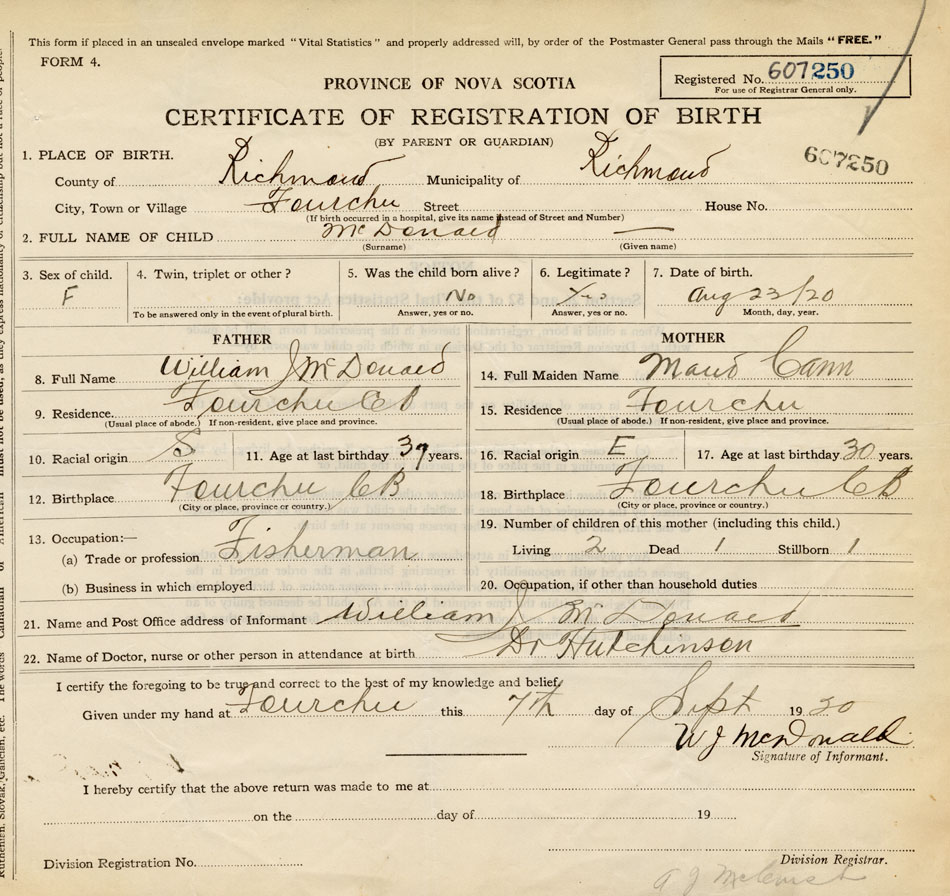 This form if placed in an unsealed envelope marked "Vital Statistics" and properly addressed will, by order of the Postmaster General pass through the Mails "FREE."
FORM 4.
Registered No. 607250
For use of Registrar General only.
PROVINCE OF NOVA SCOTIA
CERTIFICATE OF REGISTRATION OF BIRTH
(BY PARENT OR GUARDIAN)
607250
1. PLACE OF BIRTH.
County of Richmond Municipality of Richmond
City, Town or Village Fourchu Street House No.
(If birth occurred in a hospital, give its name instead of Street and Number)
2. FULL NAME OF CHILD McDonald —
(Surname) (Given name)
3. Sex of child. 4. Twin, triplet or other? 5. Was the child born alive? 6. Legitimate? 7. Date of birth.
F No Yes Aug 23/20
To be answered only in the event of plural birth. Answer, yes or no. Answer, yes or no. Month, day, year.
FATHER MOTHER
8. Full Name William J McDonald 14. Full Maiden Name Maud Cann
9. Residence. Fourchu CB 15. Residence Fourchu
(Usual place of abode.) If non-resident, give place and province. (Usual place of abode.) If non-resident, give place and province.
10. Racial origin S 11. Age at last birthday 39 years. 16. Racial origin E 17. Age at last birthday 30 years.
12. Birthplace Fourchu CB 18. Birthplace Fourchu CB
(City or place, province or country.) (City or place, province or country.)
13. Occupation:— 19. Number of children of this mother (including this child.)
(a) Trade or profession Fisherman Living 2 Dead 1 Stillborn 1
(b) Business in which employed 20. Occupation, if other than household duties
21. Name and Post Office address of Informant William J McDonald
22. Name of Doctor, nurse or other person in attendance at birth Dr Hutchinson
I certify the foregoing to be true and correct to the best of my knowledge and belief,
Given under my hand at Fourchu this 7th day of Sept 1920
W J McDonald
Signature of Informant.
I hereby certify that the above return was made to me at
on the day of 19
Division Registration No. Division Registrar.